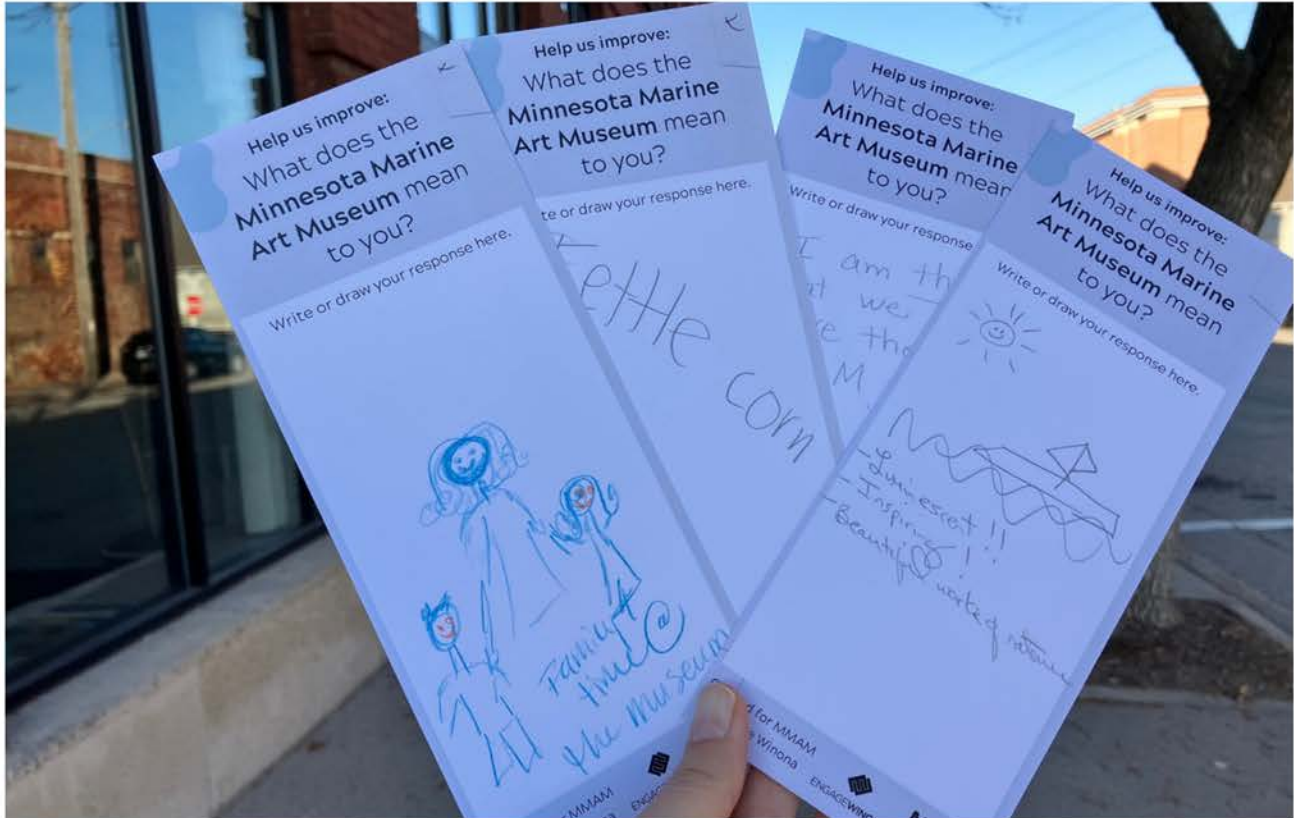 Help us improve:
What does the
Minnesota Marine
Art Museum mean
to you?
Write or draw your response here.
Family
time @
the museum
MMAM
Help us improve:
What does the
Minnesota Marine
Art Museum mean
to you?
or draw your response here.
corn
Help us improve:
What does the
Minnesota Marine
Art Museum mean
to you?
Write or draw your response
I am
we
M
Help us improve:
What does the
Minnesota Marine
Art Museum mean
to you?
Write or draw your response here.
- Luminescent !!
- Inspiring !
- Beautiful works of nature
for MMAM
Winona